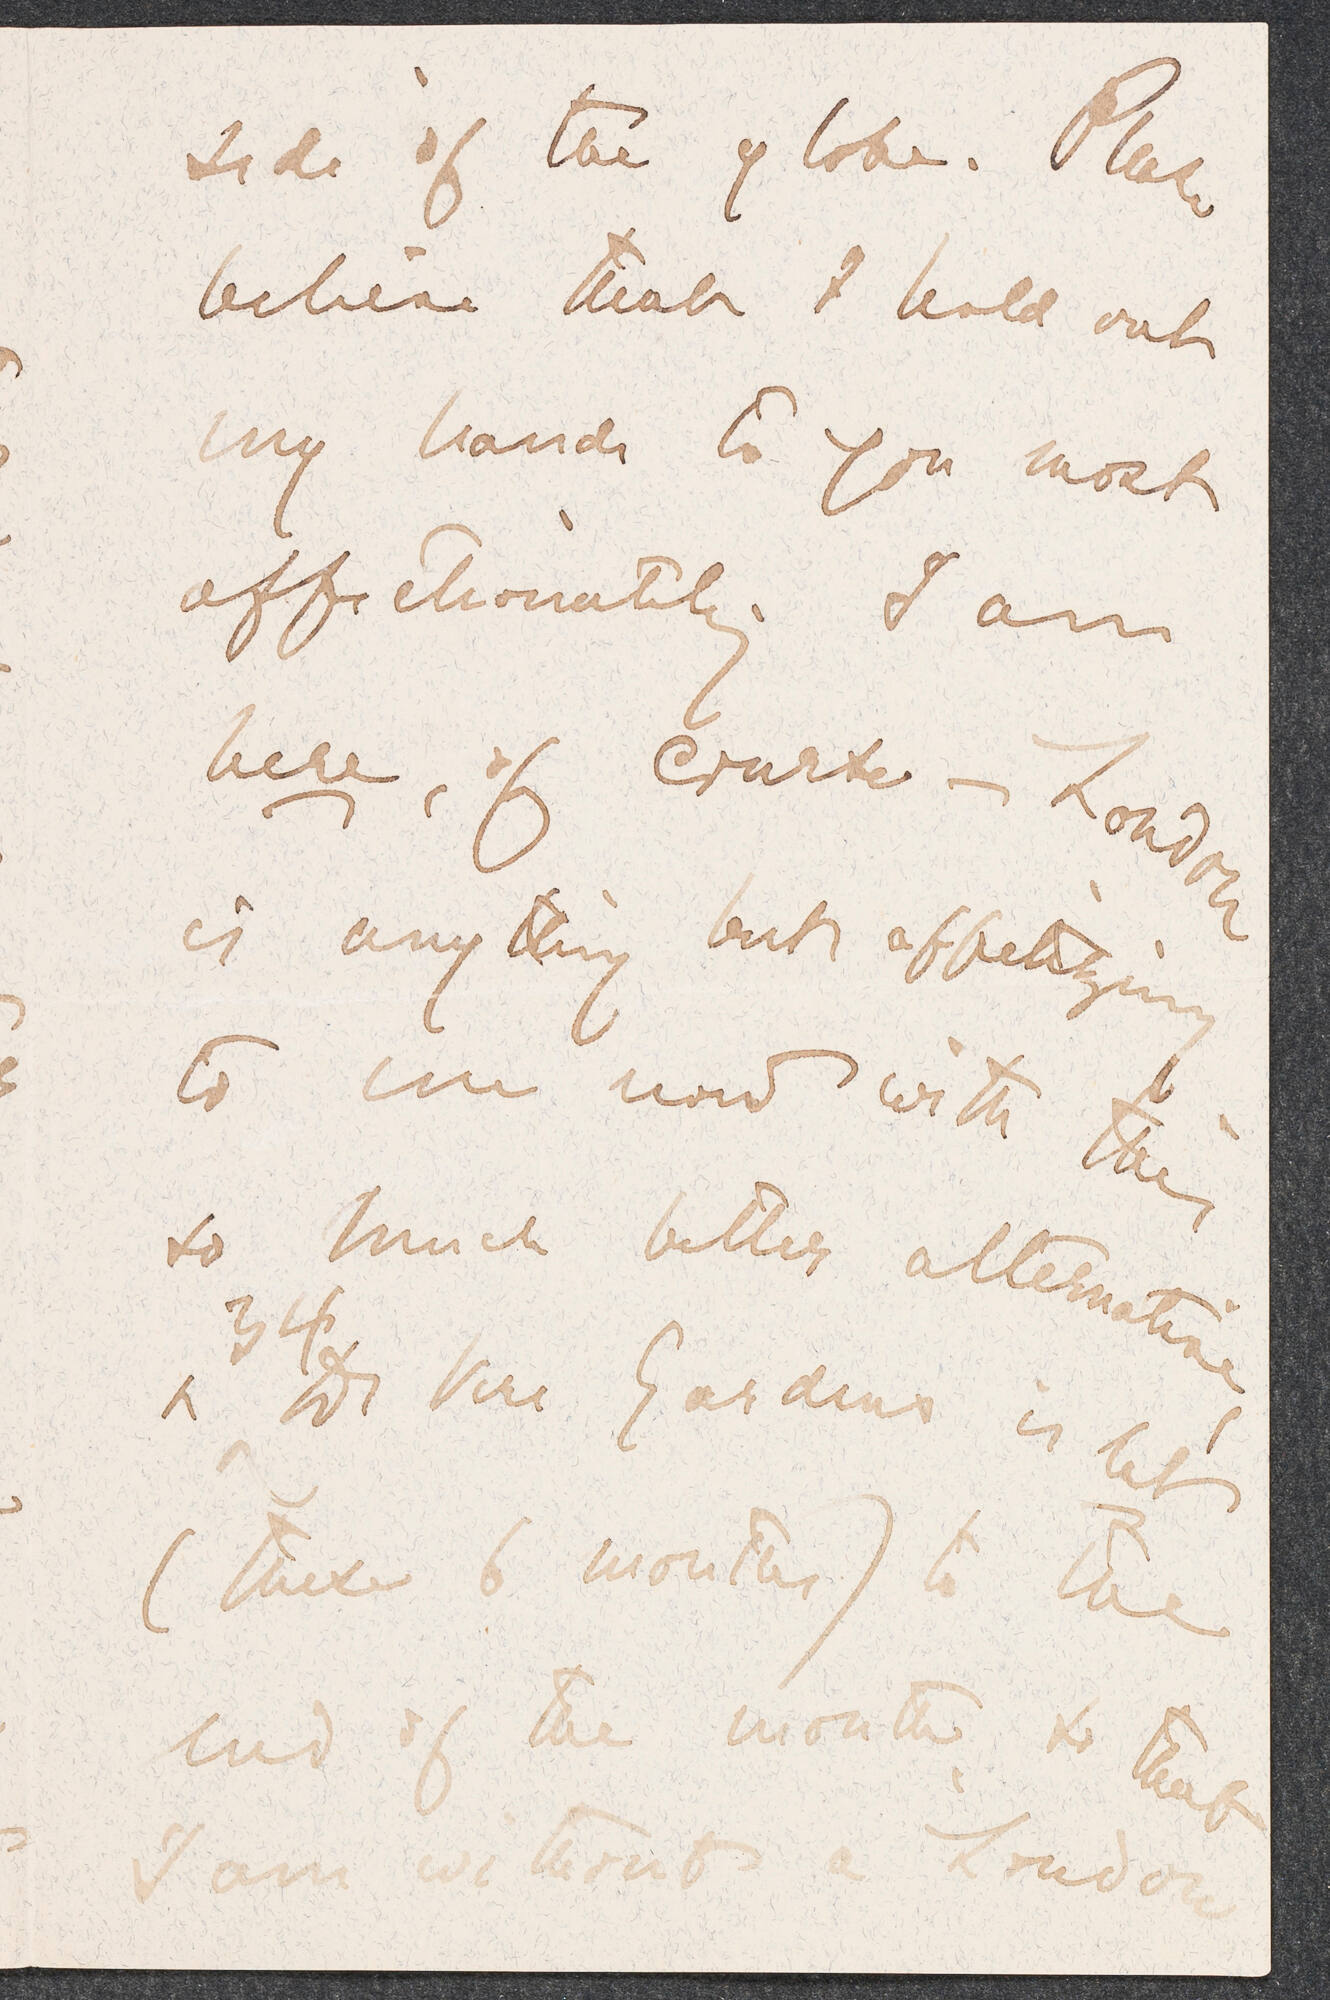 side of the globe. Please
believe that I hold out
my hands to you most
affectionately. I am
here, of course — London
is anything but appetizing
to me now with this
so much better alternative,
& 34 De Vere Gardens is let
(these 6 months) to the
end of the month, so that
I am without a London